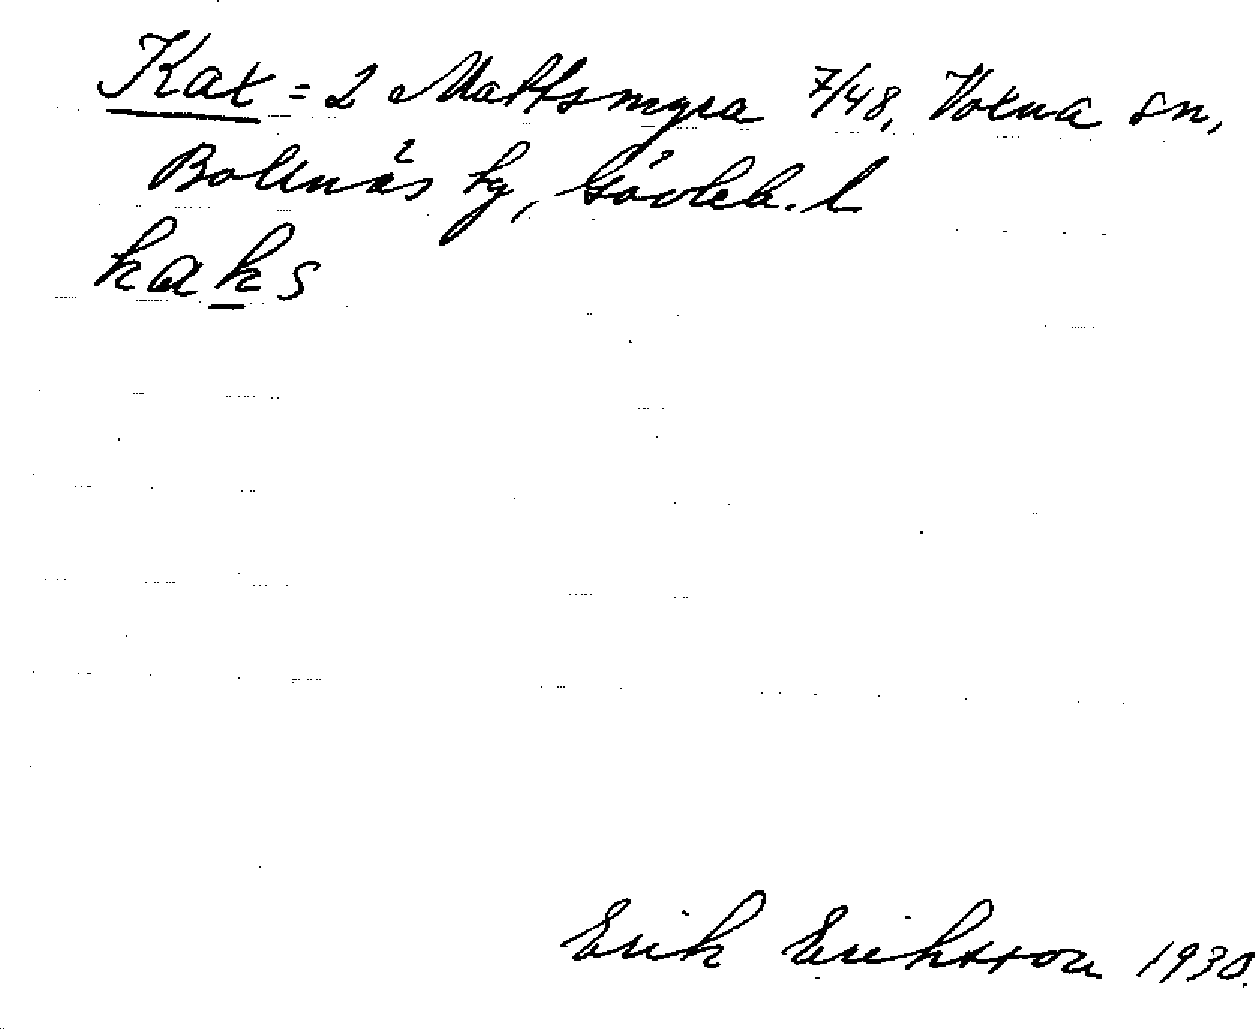 Kax = 2 Mattsmyra 7/48, Voxna sn,
Bollnäs tg, Gävleb. l
kaks
Erik Eriksson 1930.